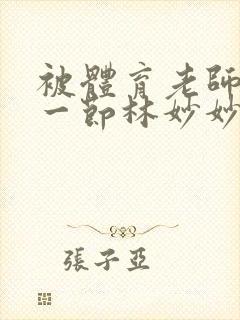 被體育老師
一節林妙妙
張子亞